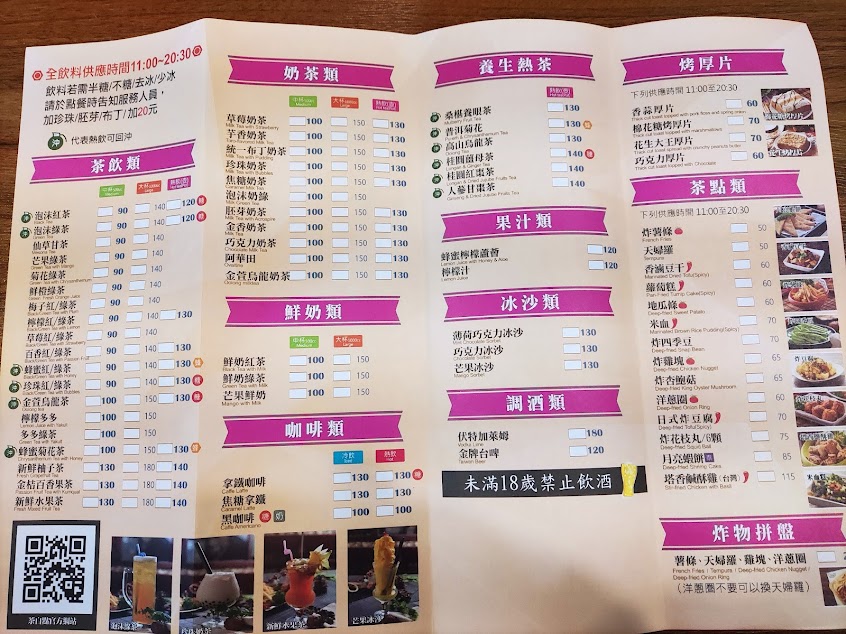 全飲料供應時間11:00~20:30
飲料若需半糖/不糖/去冰/少冰
請於點餐時告知服務人員,
加珍珠/胚芽/布丁/加20元
沖 代表熱飲可回沖
茶飲類
中杯 大杯 熱飲(壺)
泡沫紅茶 90 140 120
泡沫綠茶 90 140 120
仙草甘茶 90 140
芒果綠茶 90 140
菊花綠茶 90 140
鮮橙綠茶 90 140
梅子紅/綠茶 90 140
檸檬紅/綠茶 90 140 130
草莓紅/綠茶 90 140
百香紅/綠茶 90 140 130
蜂蜜紅/綠茶 90 140 130
珍珠紅/綠茶 90 140 130
金萱烏龍茶 100 150 130
檸檬多多 100 150
多多綠茶 100 150
蜂蜜菊花茶 100 150 130
新鮮柚子茶 130 180 140
金桔百香果茶 130 180 140
新鮮水果茶 130 180 140
茶自點官方網站
奶茶類
中杯 大杯 熱飲(壺)
草莓奶茶 100 150
芋香奶茶 100 150 130
統一布丁奶茶 100 150 130
珍珠奶茶 100 150 130
焦糖奶茶 100 150 130
泡沫奶綠 100 150
胚芽奶茶 100 150 130
金香奶茶 100 150 130
巧克力奶茶 100 150 130
阿華田 100 150 130
金萱烏龍奶茶 100 150 130
鮮奶類
中杯 大杯
鮮奶紅茶 100 150
鮮奶綠茶 100 150
芒果鮮奶 100 150
咖啡類
冷飲 熱飲
拿鐵咖啡 130 130
焦糖拿鐵 130 130
黑咖啡 100 100
泡沫綠茶
珍珠奶茶
新鮮水果茶
芒果冰沙
養生熱茶
熱飲(壺)
桑椹養眼茶 130
普洱菊花 130
高山烏龍茶 130
桂圓薑母茶 140
桂圓紅棗茶 140
人蔘甘棗茶 140
果汁類
蜂蜜檸檬蘆薈 120
檸檬汁 120
冰沙類
薄荷巧克力冰沙 130
巧克力冰沙 130
芒果冰沙 130
調酒類
伏特加萊姆 180
金牌台啤 120
未滿18歲禁止飲酒
烤厚片
下列供應時間 11:00至20:30
香蒜厚片 60
棉花糖烤厚片 70
花生大王厚片 70
巧克力厚片 60
茶點類
下列供應時間 11:00至20:30
炸薯條 50
天婦羅 60
香滷豆干 60
蘿蔔糕 60
地瓜條 60
米血 60
炸四季豆 70
炸雞塊 60
炸杏鮑菇 70
洋蔥圈 60
日式炸豆腐 70
炸花枝丸/6顆 70
月亮蝦餅 85
塔香鹹酥雞(台灣) 115
炸物拼盤
薯條、天婦羅、雞塊、洋蔥圈
French Fries / Tempura / Deep-fried Chicken Nugget /
Deep-fried Onion Ring
(洋蔥圈不要可以換天婦羅)